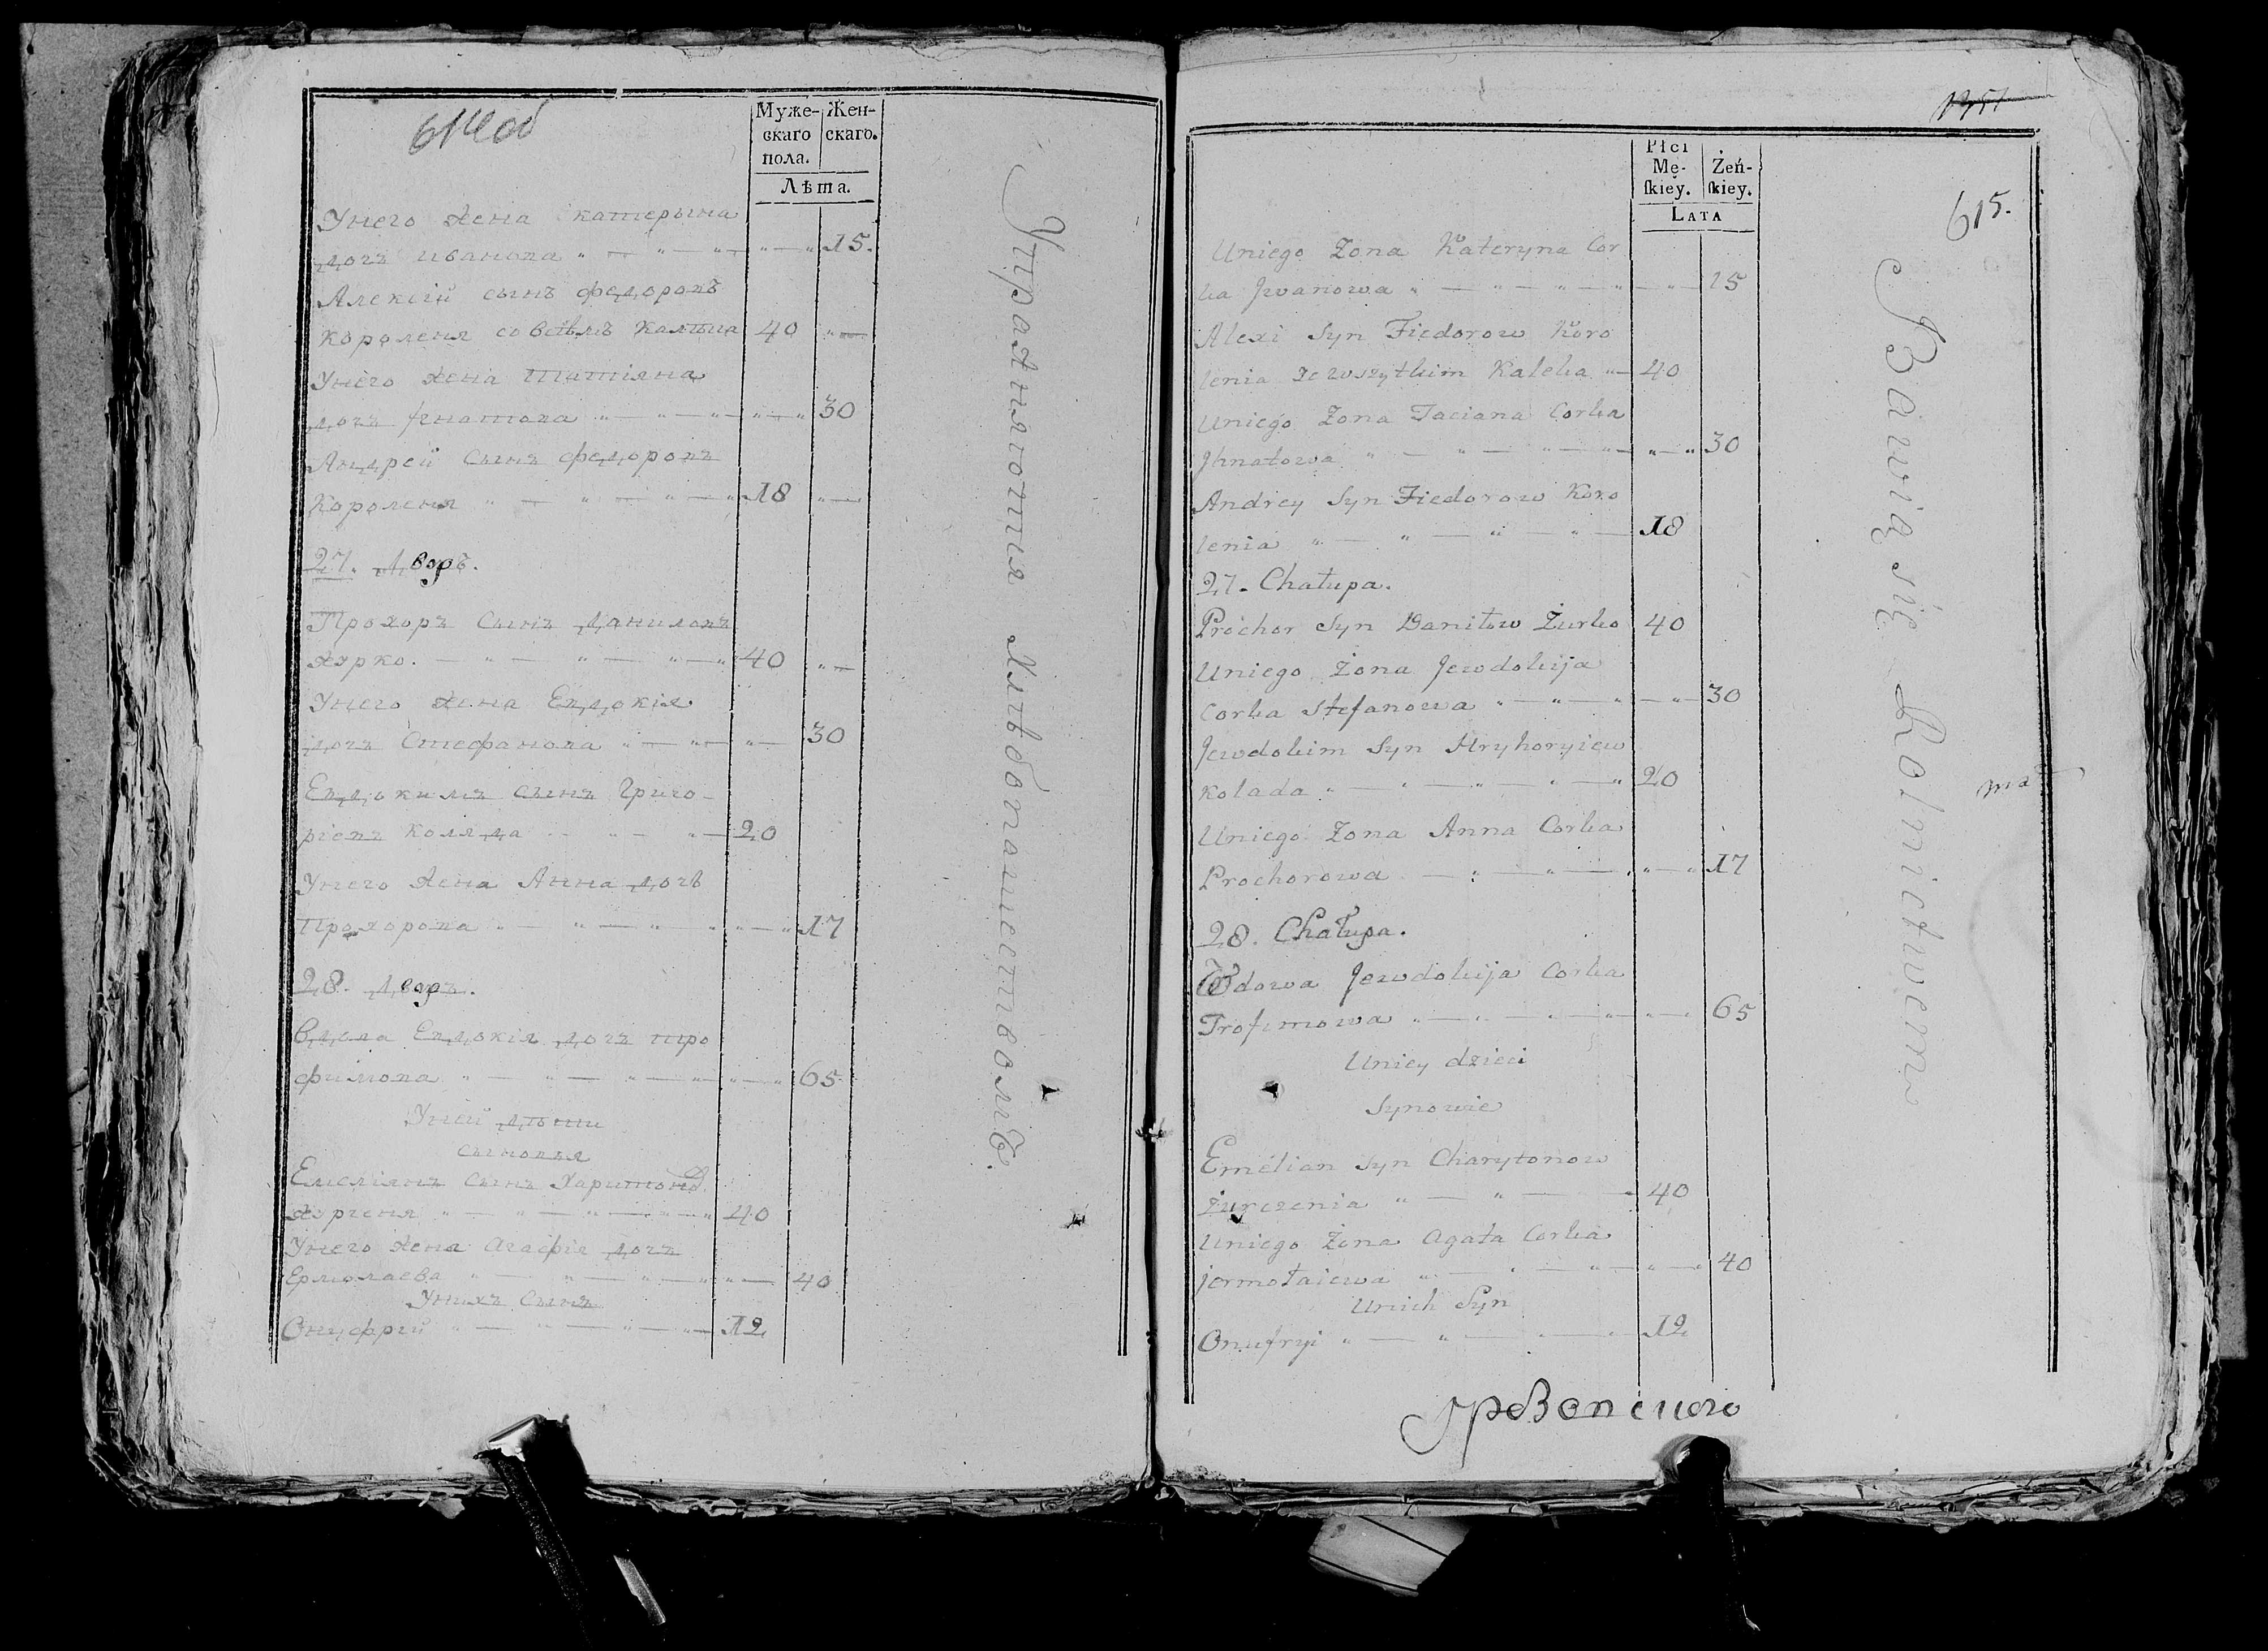 614об
Муже-
скаго
пола.
Жен-
скаго.
Лѣта.
Унего жена Катерына
дочь иванова 15.
Алексій сынъ федоровъ
короленя совсѣмъ калѣка 40
Унего жена Татіяна
дочь Игнатова 30
Андрей сынъ федоровъ
короленя 18
27. дворъ.
Прохоръ сынъ даниловъ
журко. 40
Унего жена Евдокія
дочь Стефанова 30
Евдокимъ сынъ Григо-
ріевъ коляда 20
Унего жена Анна дочь
Прохорова 17
28. дворъ.
Вдова Евдокія дочь тро
фимова 65
Уней дѣти
сыновья
Емеліянъ сынъ Харитоно
журченя 40
Унего жена агафія дочь
Ермолаева 40
Унихъ сынъ
Онуфрій 12
Упражняются Хлѣбопашествомъ.
1351
615.
Płci
Mę-
ſkiey.
Żeń-
ſkiey.
Lata
Uniego Zona Kateryna Cor
ka Jwanowa 15
Alexi Syn Fiedorow Koro
lenia zewszytkim Kaleka 40
Uniego Zona Taciana Corka
Jhnatowa 30
Andrey Syn Fiedorow Koro
lenia 18
27. Chałupa.
Prochor Syn Daniłow Żurko 40
Uniego Żona Jewdokija
Corka Stefanowa 30
Jewdokim Syn Hryhoryiew
Kolada 20
Uniego Zona Anna Corka
Prochorowa 17
28. Chałupa.
Wdowa Jewdokija Corka
Trofimowa 65
Uniey dzieci
Synowie
Emélian Syn Charytonow
żurczenia 40
Uniego Żona Agata Corka
jermołaiewa 40
Unich Syn
Onufryi 12
Bawią się Rolnictwem